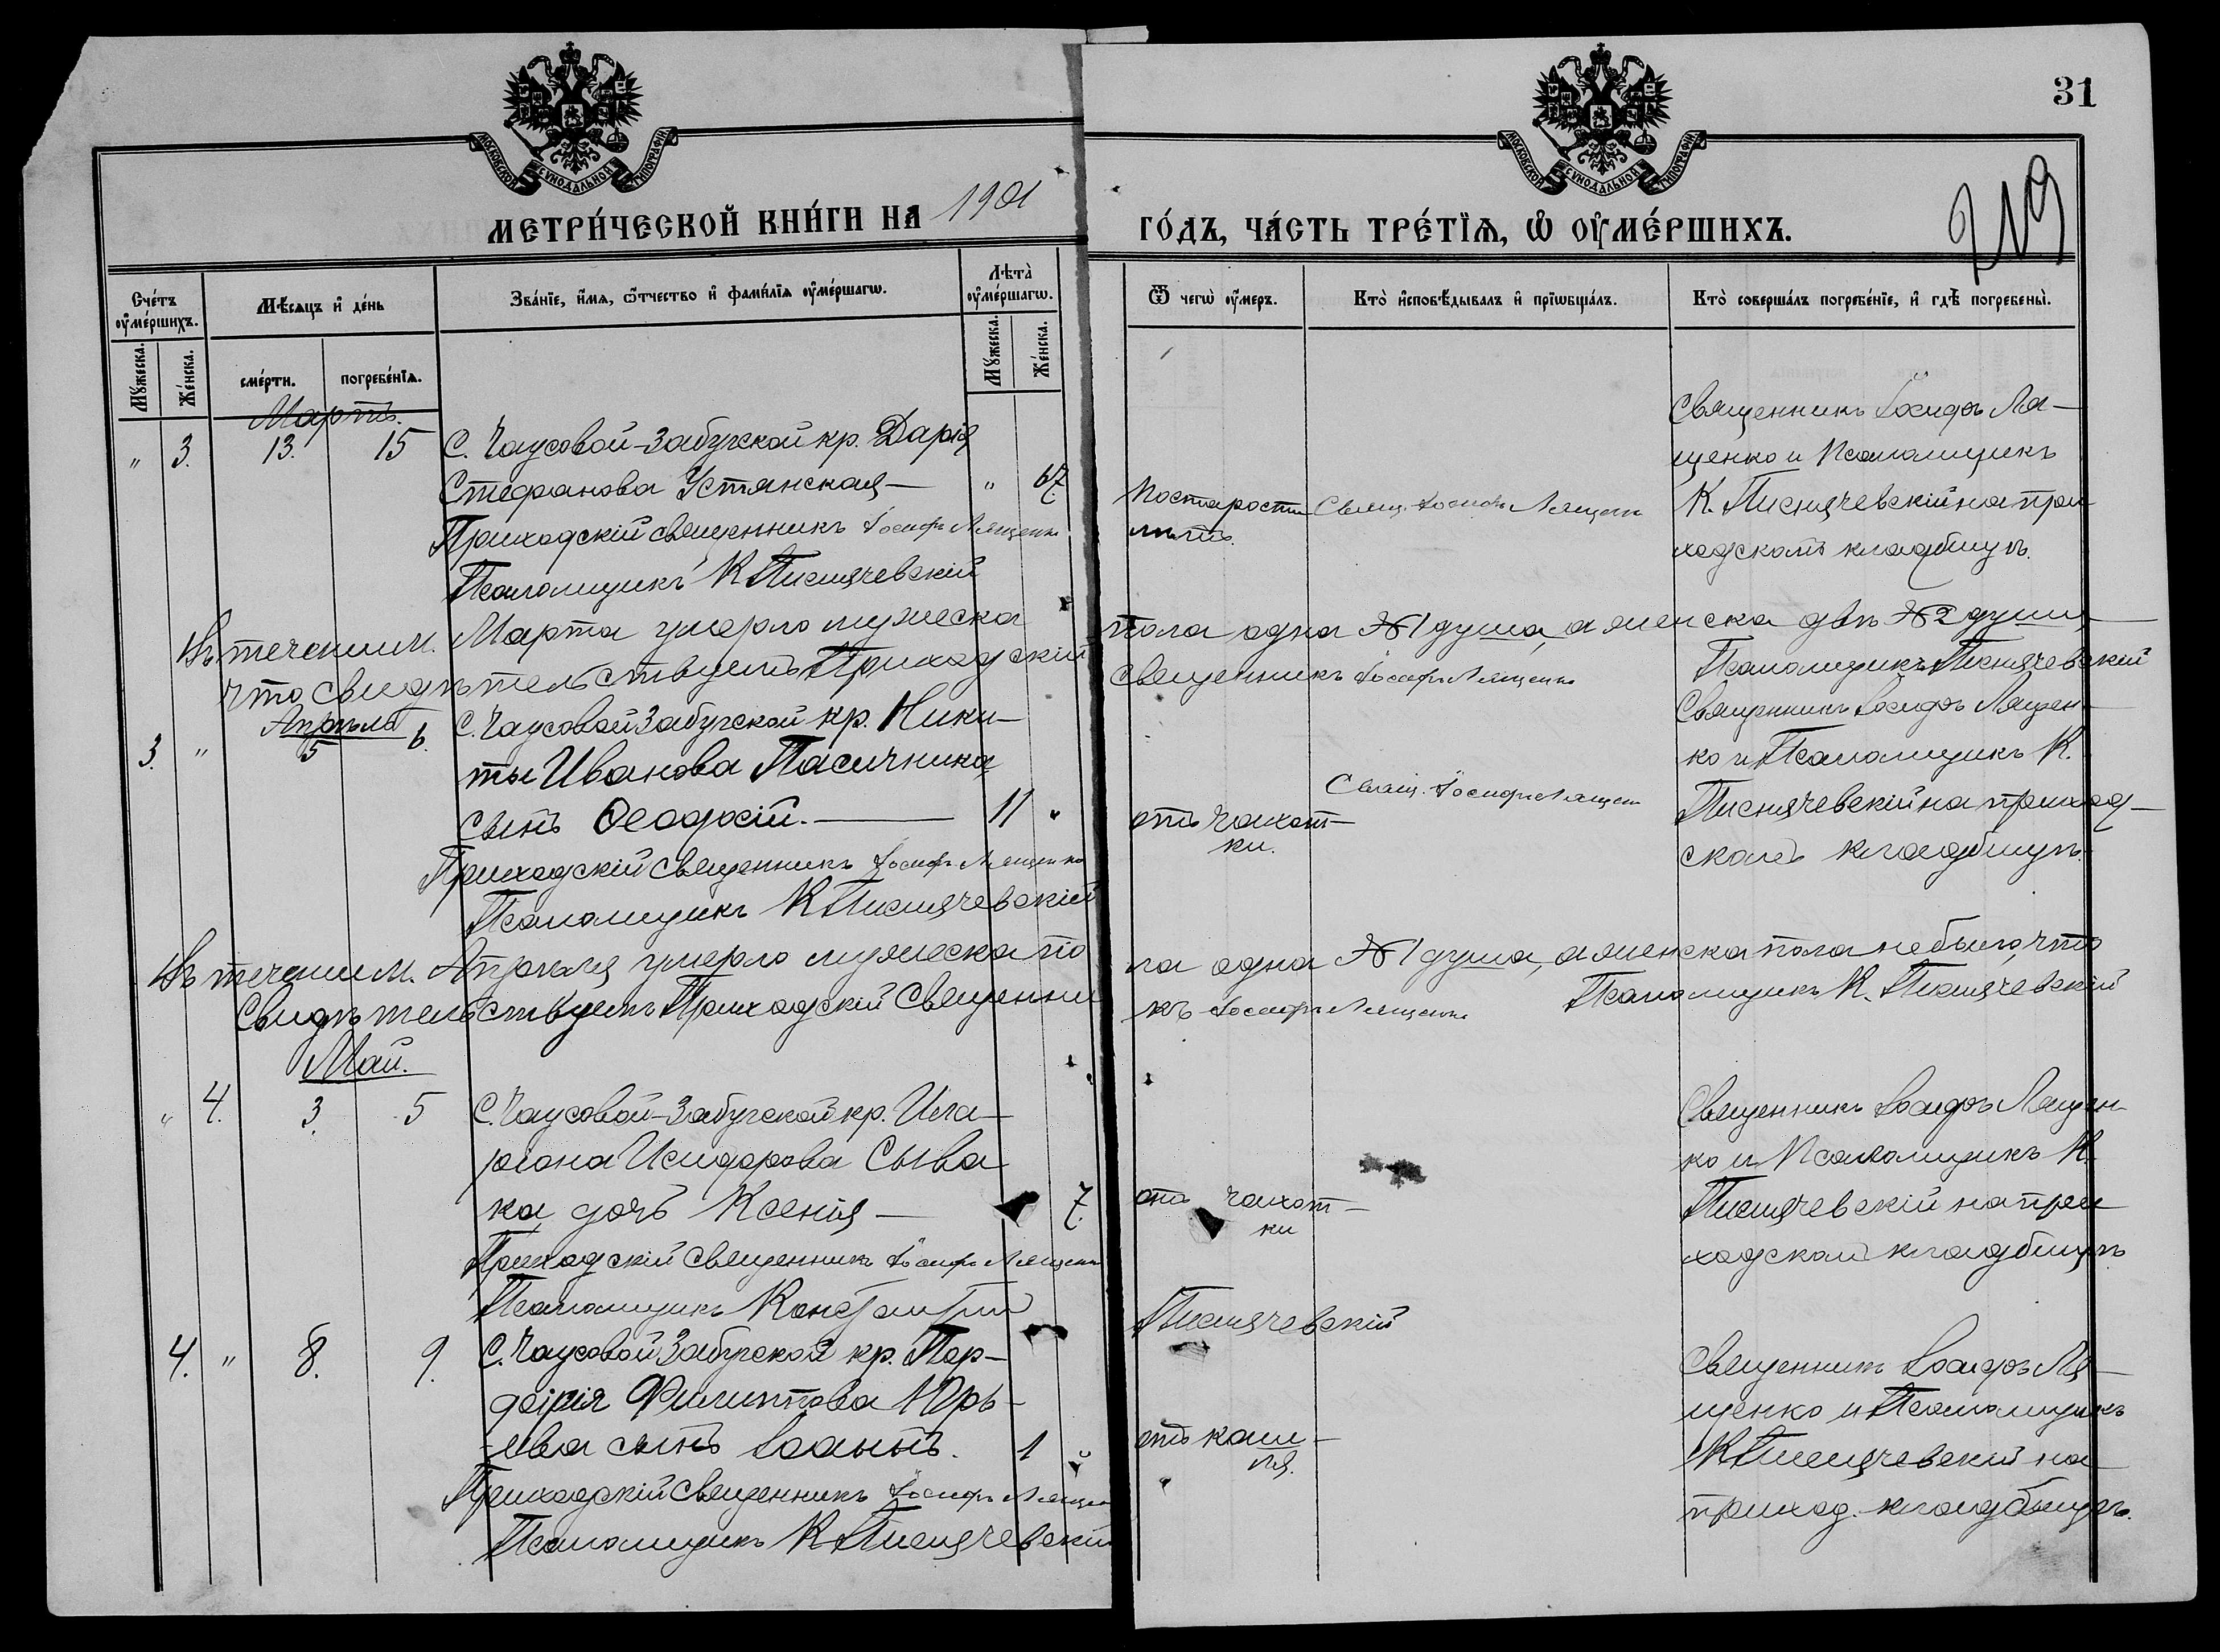 31
219
МОСКОВСКОЙ СѴНОДАЛЬНОЙ ТИПОГРАФІИ
МОСКОВСКОЙ СѴНОДАЛЬНОЙ ТИПОГРАФІИ
МЕТРИ́ЧЕСКОЙ КНИ́ГИ НА 1901
ГО́ДЪ, ЧА́СТЬ ТРЕ́ТІѦ, Ѡ҆ ОУ҆МЕ́РШИХЪ.
Сче́тъ оу҆ме́ршихъ.
Мꙋ́жеска.
Же́нска.
Мѣ́сѧцъ и҆ де́нь
сме́рти.
погребе́нїѧ.
Зва́нїе, и҆́мѧ, ѻ҆́тчество и҆ фамѝлїѧ оу҆ме́ршагѡ.
Лѣта̀ оу҆ме́ршагѡ.
Мꙋ́жеска.
Же́нска.
Ѿ чегѡ̀ оу҆́меръ.
Кто̀ и҆сповѣ́дывалъ и҆ прїѡбща́лъ.
Кто̀ соверша́лъ погребе́нїе, и҆ гдѣ̀ погребены̀.
Мартъ.
" 3. 13. 15 С. Чаусовой-Забугской кр. Дарія
Стефанова Устянская — " 67.
Приходскій священникъ Іосифъ Лященко
Псаломщикъ К Писнячевскій
По старости лѣтъ.
Свящ. Іосифъ Лященко
Священникъ Іосифъ Ля-
щенко и Псаломщикъ
К. Писнячевскій на при-
ходскомъ кладбищѣ.
Въ теченіи м. Марта умерло мужеска пола одна №1 душа, а женска двѣ №2 души,
что свидѣтельствуетъ Приходскій священникъ Іосифъ Лященко Псаломщикъ Писнячевскій
Апрѣль
3. " 5 6. С. Чаусовой Забугской кр. Ники-
ты Иванова Пасичника
сынъ Ѳеодосій. — 11 "
Приходскій священникъ Іосифъ Лященко
Псаломщикъ К Писнячевскій
отъ чахот-
ки.
Свящ. Іосифъ Лященко
Священникъ Іосифъ Лящен-
ко и Псаломщикъ К.
Писнячевскій на приход-
скомъ кладбищѣ.
Въ теченіи м. Апрѣля умерло мужеска пола одна №1 душа, а женска пола не было, что
свидѣтельствуетъ Приходскій Священникъ Іосифъ Лященко Псаломщикъ К. Писнячевскій
Май.
" 4. 3. 5 С. Чаусовой-Забугской кр. Ила-
ріона Исидорова Сыва
ка дочь Ксенія — 7.
Приходскій священникъ Іосифъ Лященко
Псаломщикъ Константинъ Писнячевскій
отъ чахот-
ки
Священникъ Іосифъ Лящен-
ко и Псаломщикъ К.
Писнячевскій на при
ходскомъ кладбищѣ
4. " 8. 9. С. Чаусовой Забугской кр. Пор-
фирія Филиппова Юрь-
ева сынъ Іоаннъ. 1 "
Приходскій священникъ Іосифъ Лященко
Псаломщикъ К Писнячевскій
отъ каш-
ля.
Священникъ Іосифъ Ля-
щенко и Псаломщикъ
К Писнячевскій на
приход. кладбищѣ.